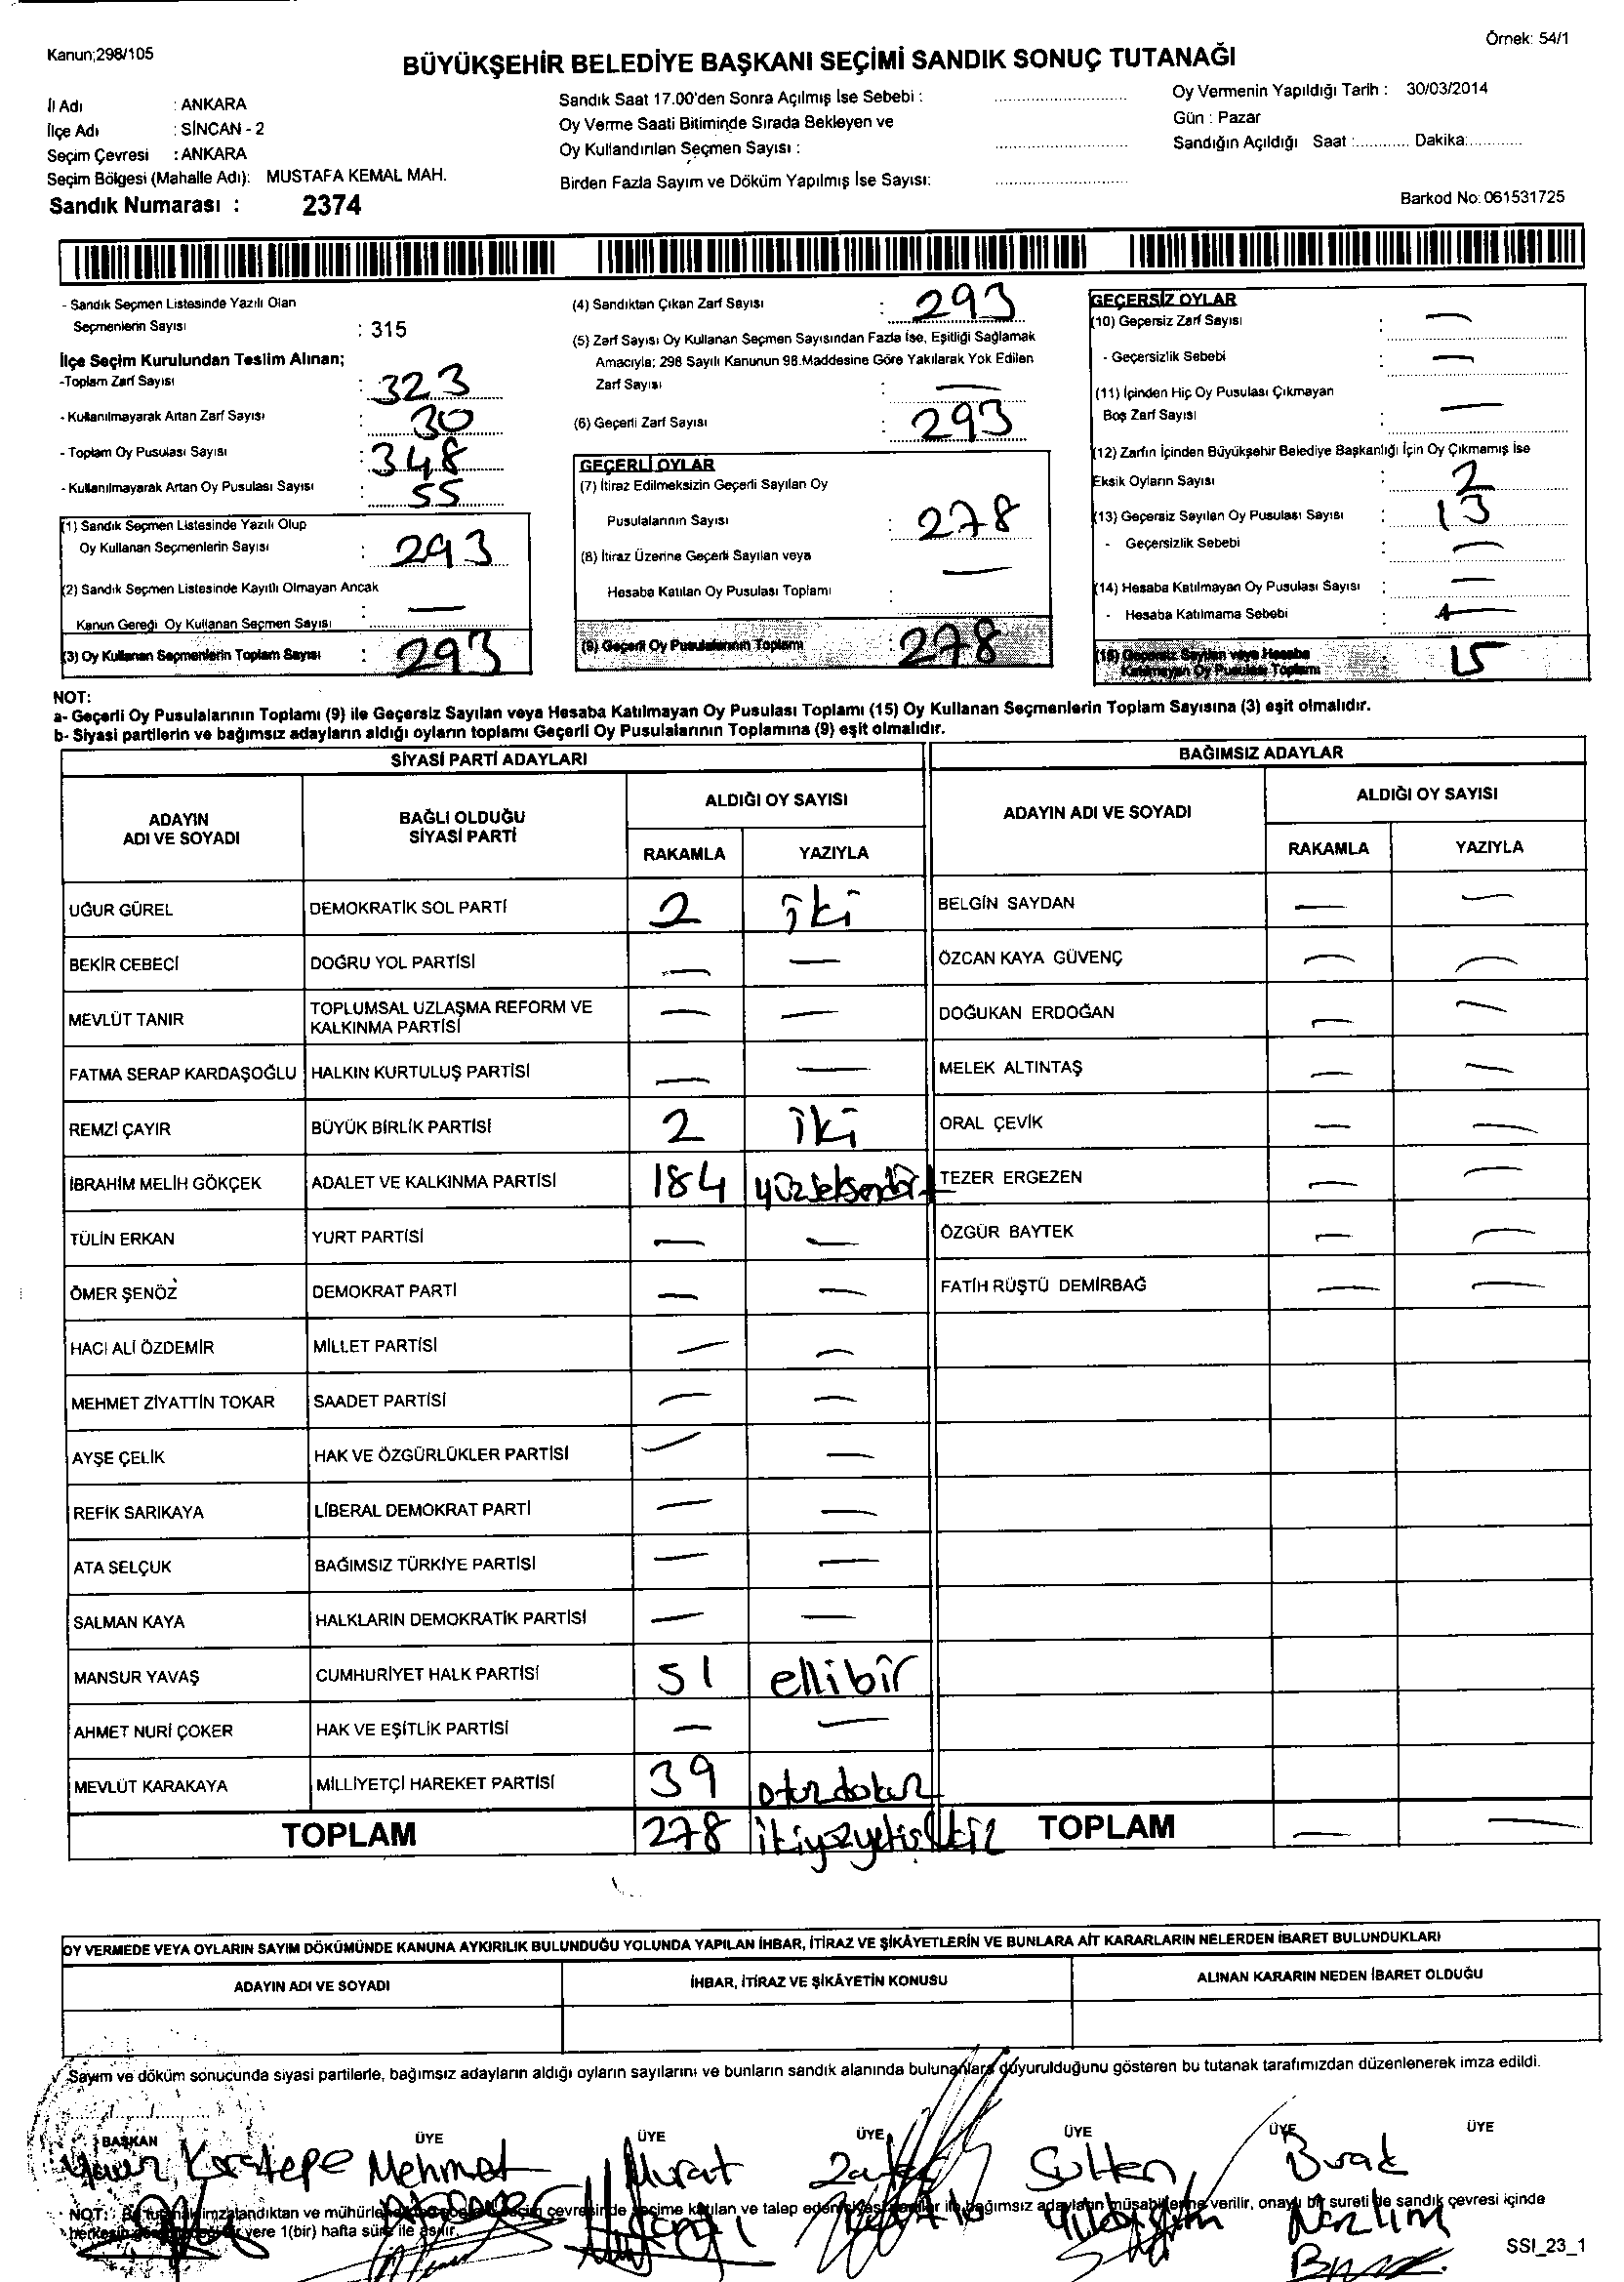 Kanun;298/105
Örnek: 54/1
BÜYÜKŞEHİR BELEDİYE BAŞKANI SEÇİMİ SANDIK SONUÇ TUTANAĞI
İl Adı : ANKARA
İlçe Adı : SİNCAN - 2
Seçim Çevresi : ANKARA
Seçim Bölgesi (Mahalle Adı): MUSTAFA KEMAL MAH.
Sandık Numarası : 2374
Sandık Saat 17.00'den Sonra Açılmış İse Sebebi :
Oy Verme Saati Bitiminde Sırada Bekleyen ve
Oy Kullandırılan Seçmen Sayısı :
Birden Fazla Sayım ve Döküm Yapılmış İse Sayısı:
Oy Vermenin Yapıldığı Tarih : 30/03/2014
Gün : Pazar
Sandığın Açıldığı Saat :............ Dakika:............
Barkod No: 061531725
- Sandık Seçmen Listesinde Yazılı Olan
Seçmenlerin Sayısı : 315
İlçe Seçim Kurulundan Teslim Alınan;
-Toplam Zarf Sayısı : 323
- Kullanılmayarak Artan Zarf Sayısı : 30
- Toplam Oy Pusulası Sayısı : 348
- Kullanılmayarak Artan Oy Pusulası Sayısı : 55
(1) Sandık Seçmen Listesinde Yazılı Olup
Oy Kullanan Seçmenlerin Sayısı : 293
(2) Sandık Seçmen Listesinde Kayıtlı Olmayan Ancak
Kanun Gereği Oy Kullanan Seçmen Sayısı : —
(3) Oy Kullanan Seçmenlerin Toplam Sayısı : 293
(4) Sandıktan Çıkan Zarf Sayısı : 293
(5) Zarf Sayısı Oy Kullanan Seçmen Sayısından Fazla İse, Eşitliği Sağlamak
Amacıyla; 298 Sayılı Kanunun 98.Maddesine Göre Yakılarak Yok Edilen
Zarf Sayısı : —
(6) Geçerli Zarf Sayısı : 293
GEÇERLİ OYLAR
(7) İtiraz Edilmeksizin Geçerli Sayılan Oy
Pusulalarının Sayısı : 278
(8) İtiraz Üzerine Geçerli Sayılan veya
Hesaba Katılan Oy Pusulası Toplamı : —
(9) Geçerli Oy Pusulalarının Toplamı : 278
GEÇERSİZ OYLAR
(10) Geçersiz Zarf Sayısı : —
- Geçersizlik Sebebi : —
(11) İçinden Hiç Oy Pusulası Çıkmayan
Boş Zarf Sayısı : —
(12) Zarfın İçinden Büyükşehir Belediye Başkanlığı İçin Oy Çıkmamış İse
Eksik Oyların Sayısı : 2
(13) Geçersiz Sayılan Oy Pusulası Sayısı : 13
- Geçersizlik Sebebi : —
(14) Hesaba Katılmayan Oy Pusulası Sayısı : —
- Hesaba Katılmama Sebebi : —
(15) Geçersiz Sayılan veya Hesaba
Katılmayan Oy Pusulası Toplamı : 15
NOT:
a- Geçerli Oy Pusulalarının Toplamı (9) ile Geçersiz Sayılan veya Hesaba Katılmayan Oy Pusulası Toplamı (15) Oy Kullanan Seçmenlerin Toplam Sayısına (3) eşit olmalıdır.
b- Siyasi partilerin ve bağımsız adayların aldığı oyların toplamı Geçerli Oy Pusulalarının Toplamına (9) eşit olmalıdır.
SİYASİ PARTİ ADAYLARI
BAĞIMSIZ ADAYLAR
ADAYIN
ADI VE SOYADI
BAĞLI OLDUĞU
SİYASİ PARTİ
ALDIĞI OY SAYISI
RAKAMLA YAZIYLA
ADAYIN ADI VE SOYADI
ALDIĞI OY SAYISI
RAKAMLA YAZIYLA
UĞUR GÜREL DEMOKRATİK SOL PARTİ 2 iki BELGİN SAYDAN — —
BEKİR CEBECİ DOĞRU YOL PARTİSİ — — ÖZCAN KAYA GÜVENÇ — —
MEVLÜT TANIR TOPLUMSAL UZLAŞMA REFORM VE
KALKINMA PARTİSİ — — DOĞUKAN ERDOĞAN — —
FATMA SERAP KARDAŞOĞLU HALKIN KURTULUŞ PARTİSİ — — MELEK ALTINTAŞ — —
REMZİ ÇAYIR BÜYÜK BİRLİK PARTİSİ 2 iki ORAL ÇEVİK — —
İBRAHİM MELİH GÖKÇEK ADALET VE KALKINMA PARTİSİ 184 yüzseksendört TEZER ERGEZEN — —
TÜLİN ERKAN YURT PARTİSİ — — ÖZGÜR BAYTEK — —
ÖMER ŞENÖZ DEMOKRAT PARTİ — — FATİH RÜŞTÜ DEMİRBAĞ — —
HACI ALİ ÖZDEMİR MİLLET PARTİSİ — —
MEHMET ZİYATTİN TOKAR SAADET PARTİSİ — —
AYŞE ÇELİK HAK VE ÖZGÜRLÜKLER PARTİSİ — —
REFİK SARIKAYA LİBERAL DEMOKRAT PARTİ — —
ATA SELÇUK BAĞIMSIZ TÜRKİYE PARTİSİ — —
SALMAN KAYA HALKLARIN DEMOKRATİK PARTİSİ — —
MANSUR YAVAŞ CUMHURİYET HALK PARTİSİ 51 ellibir
AHMET NURİ ÇOKER HAK VE EŞİTLİK PARTİSİ — —
MEVLÜT KARAKAYA MİLLİYETÇİ HAREKET PARTİSİ 39 otuzdokuz
TOPLAM 278 TOPLAM — —
OY VERMEDE VEYA OYLARIN SAYIM DÖKÜMÜNDE KANUNA AYKIRILIK BULUNDUĞU YOLUNDA YAPILAN İHBAR, İTİRAZ VE ŞİKÂYETLERİN VE BUNLARA AİT KARARLARIN NELERDEN İBARET BULUNDUKLARI
ADAYIN ADI VE SOYADI İHBAR, İTİRAZ VE ŞİKÂYETİN KONUSU ALINAN KARARIN NEDEN İBARET OLDUĞU
Sayım ve döküm sonucunda siyasi partilerle, bağımsız adayların aldığı oyların sayılarını ve bunların sandık alanında bulunanlara duyurulduğunu gösteren bu tutanak tarafımızdan düzenlenerek imza edildi.
BAŞKAN ÜYE ÜYE ÜYE ÜYE ÜYE ÜYE
Karatepe Mehmet Murat Sultan Burak
NOT: imzalandıktan ve mühürlendikten seçim çevresinde seçime katılan ve talep eden ile bağımsız adayların müşahitlerine verilir, onaylı bir sureti de sandık çevresi içinde
yere 1(bir) hafta süre ile asılır.
SSI_23_1